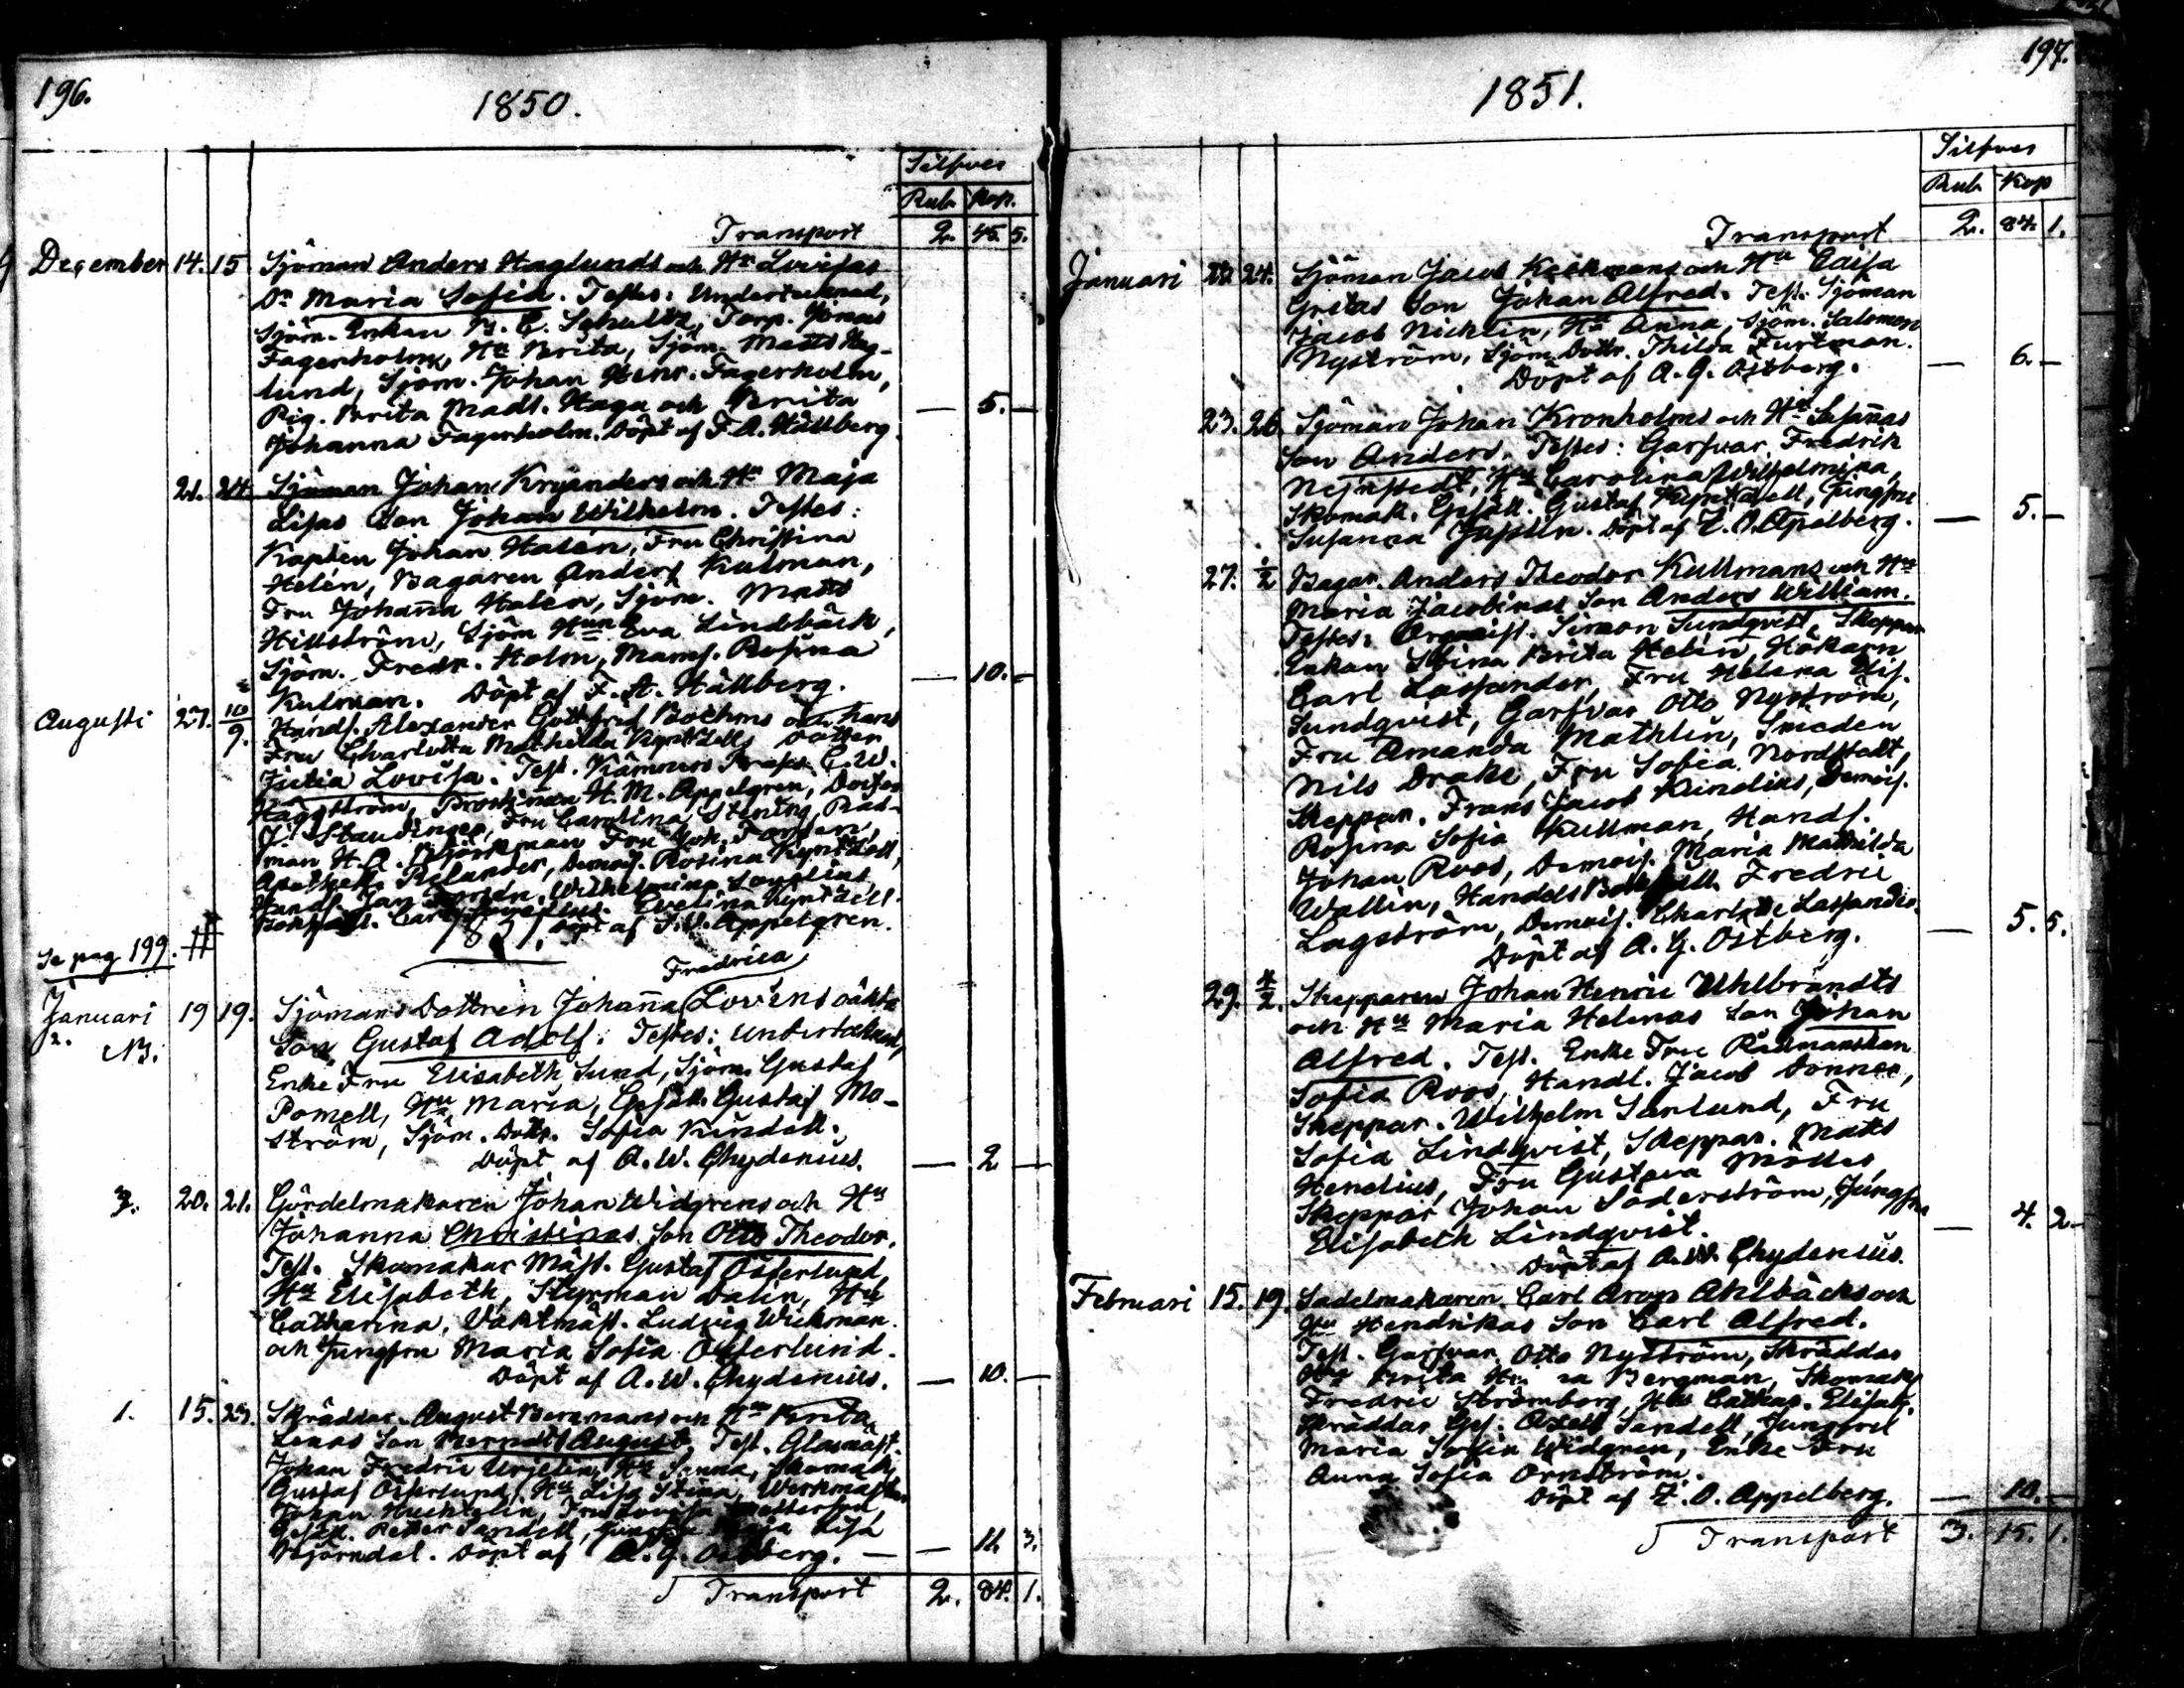 196.
1850.
Silfver
Rub. Kop.
Transport 2. 45. 5.
December 14. 15 Sjöman Anders Haglunds och Hu Lovisas
Dr Maria Sofia. Testes: Undertecknad,
Sjöm. Enkan B. C. Schultz, Torp. Jonas
Fagerholm, Hu Brita, Sjöm. Matts Hag-
lund, Sjöm. Johan Henr. Fagerholm,
Pig. Brita Madl. Haga och Brita
Johanna Fagerholm. Döpt af F. A. Hällberg. — 5. —
21. 24 Sjöman Johan Kryanders och Hu Maja
Lisas Son Johan Wilhelm. Testes:
Kapten Johan Halén, Fru Christina
Helén, Bagaren Anders Kulman,
Fru Johanna Halén, Sjöm. Matts
Hillström, Sjöm Hun Eva Lindbäck,
Sjöm. Fredr. Holm, Mams. Rosina
Kulman. Döpt af F. A. Hällberg. — 10. —
Augusti 27. 10/9. Handl. Alexander Gottfrid Boehms och hans
Fru Charlotta Mathilda Kyntzells Dotter
Julia Lovisa. Test. Kämners Præses C. W.
Häggström, Prostinnan H. M. Appelgren, Doctor
J. Staudinger, Fru Carolina Stening, Råd-
man H. A. Björkman Fru Joh. Forsén,
Apothek. Relander, Demois. Rosina Kyntzell,
Handl. Jan Forsén, Wilhelmina Lovelius
Bokhåll. Carl Lovelius. Evelina Kyntzell.
1851. Döpt af J. W. Appelgren.
Se pag 199. #
Fredrica
Januari 19 19. Sjömans Dottren Johanna Lovéns oäkta
2. NB. Son Gustaf Adolf. Testes: undertecknad,
Enke Fru Elisabeth Sund, Sjöm. Gustaf
Pomell, Hu Maria, Gesäll. Gustaf Mo-
ström, Sjöm. Dottr. Sofia Kundell.
Döpt af A. W. Chydenius. — 2 —
3. 20. 21. Gördelmakaren Johan Widgrens och Hu
Johanna Christinas Son Otto Theodor.
Test. Skomakar Mäst. Gustaf Österlund,
Hu Elisabeth, Styrman Dalin, Hu
Catharina, Vaktmäst. Ludvig Wickman
och Jungfru Maria Sofia Österlund.
Döpt af A. W. Chydenius. — 10. —
1. 15. 23. Skräddar. August Bergmans och Hu Brita
Lenas Son Berndt August. Test. Glasmäst.
Johan Fredric Urjelin, Hu Sanna, Skomak.
Gustaf Österlund, Hu Lisa Stina, Werkmäster
Johan Huchtelin, Fru Lovisa
Gesäll. Petter Sandell, Maja Lisa
Björndal. Döpt af A. G. Östberg. — — 11. 3.
Transport 2. 84. 1.
197.
1851.
Silfver
Rub. Kop
Transport 2. 84. 1.
Januari 24. Sjöman Jacob Keckmans och Hu Caisa
Gretas Son Johan Alfred. Test. Sjöman
Jacob Nicklin, Hu Anna, Sjöm. Salomon
Nyström, Sjöm. Dottr. Thilda Furtman.
Döpt af A. G. Östberg. — 6. —
23. 26. Sjöman Johan Kronholms och Hu Susannas
Son Anders. Testes: Garfvar Fredrik
Nejnstedt, Hu Carolina Wilhelmina,
Skomak. Gesäll. Gustaf Kyntzell, Jungfru
Susanna Japlin. Döpt af Z. O. Appelberg. — 5. —
27. 1/2 Bagar. Anders Theodor Kullmans och Hu
Maria Jacobinas Son Anders William.
Testes: Organist. Simon Sundqvist, Skeppar
Enkan Stina Brita Helin, Hökarn
Carl Lassander, Fru Helena Elis.
Sundqvist, Garfvar Otto Nyström,
Fru Amanda Mathlin, Smeden
Nils Drake, Fru Sofia Nordstedt,
Skeppar. Frans Jacob Kindlius, Demois.
Rosina Sofia Kullman, Handl.
Johan Roos, Demois. Maria Mathilda
Wallin, Handels Bokhåll. Fredric
Lagström, Demois. Charlotte Lassander.
Döpt af A. G. Östberg. — 5. 5.
29. 4/2. Skepparen Johan Henric Uhlbrandts
och Hu Maria Helenas Son Johan
Alfred. Test. Enke Fru Rådmanskan
Sofia Roos, Handl. Jacob Donner,
Skeppar. Wilhelm Sanlund, Fru
Sofia Lindqvist, Skeppar. Matts
Henelius, Fru Gustava Möller,
Skeppar Johan Söderström, Jungfru
Elisabeth Lindqvist.
Döpt af A. W. Chydenius. — 4. 2.
Februari 15. 19. Sadelmakaren Carl Aron Ahlbäcks och
Hu Hendrikas Son Carl Alfred.
Test. Garfvar Otto Nyström, Skräddar
Hu Brita Bergman, Skomak.
Fredric Strömberg, Hu Cathar. Elisab.
Skräddar Ges. Axell Sandell, Jungfru
Maria Sofia Widgren, Enke Fru
Anna Sofia Örnström.
Döpt af Z. O. Appelberg. — 10. —
Transport 3. 15. 1.